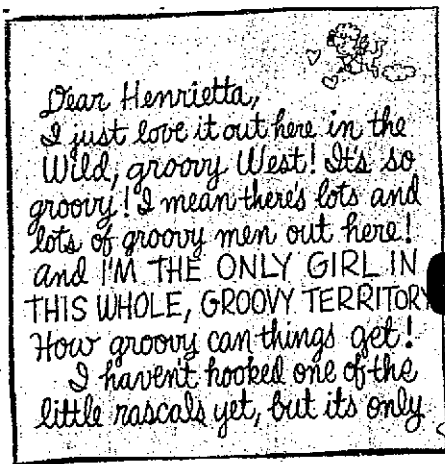 Dear Henrietta,
I just love it out here in the
Wild, groovy West! It's so
groovy! I mean there's lots and
lots of groovy men out here!
and I'M THE ONLY GIRL IN
THIS WHOLE, GROOVY TERRITORY
How groovy can things get!
I haven't hooked one of the
little rascals yet, but its only